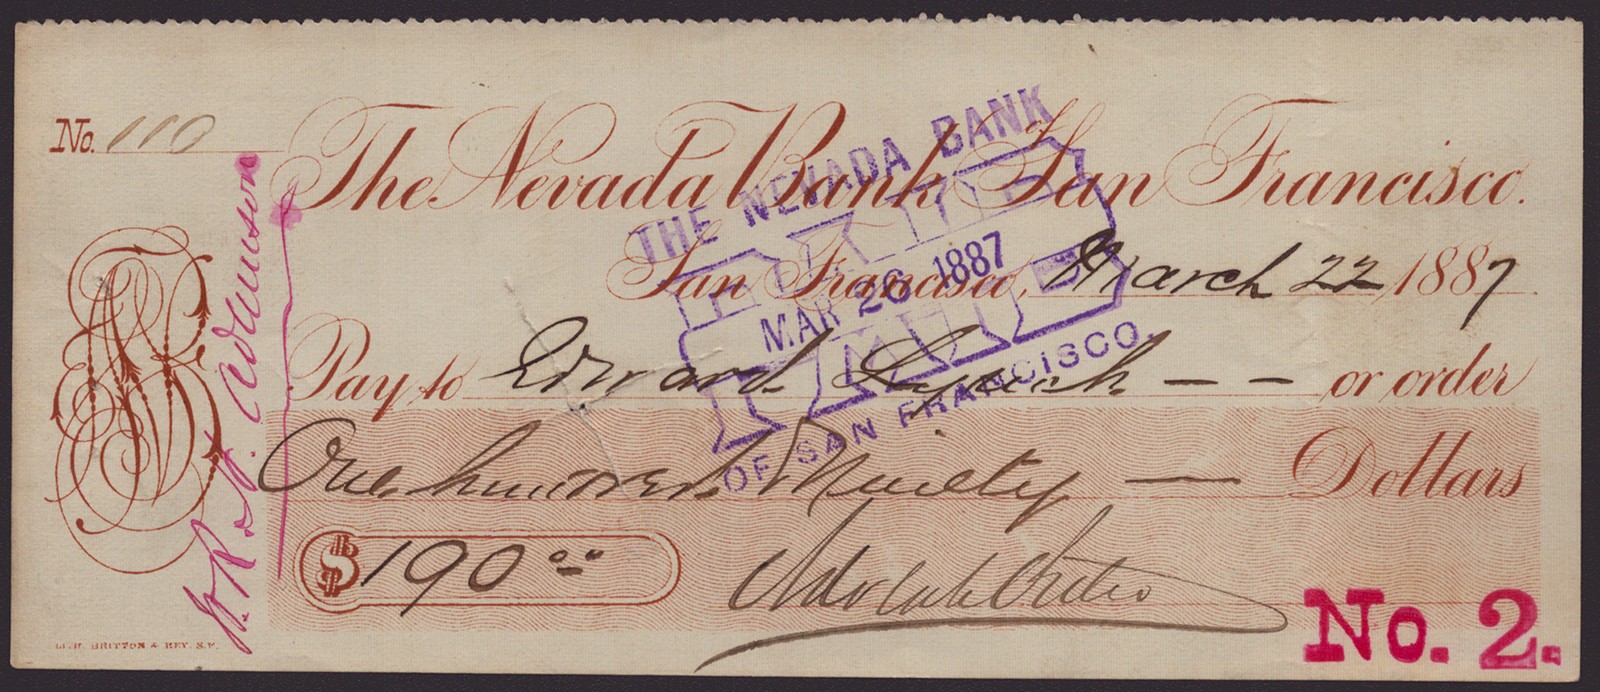 No. 110
The Nevada Bank, San Francisco.
San Francisco, March 22 1887
Pay to Edward Lynch — — or order
One hundred Ninety — Dollars
$ 190 00
Adolph Sutro
No. 2.
THE NEVADA BANK
PAID
MAR 26 1887
OF SAN FRANCISCO.
LITH. BRITTON & REY. S.F.